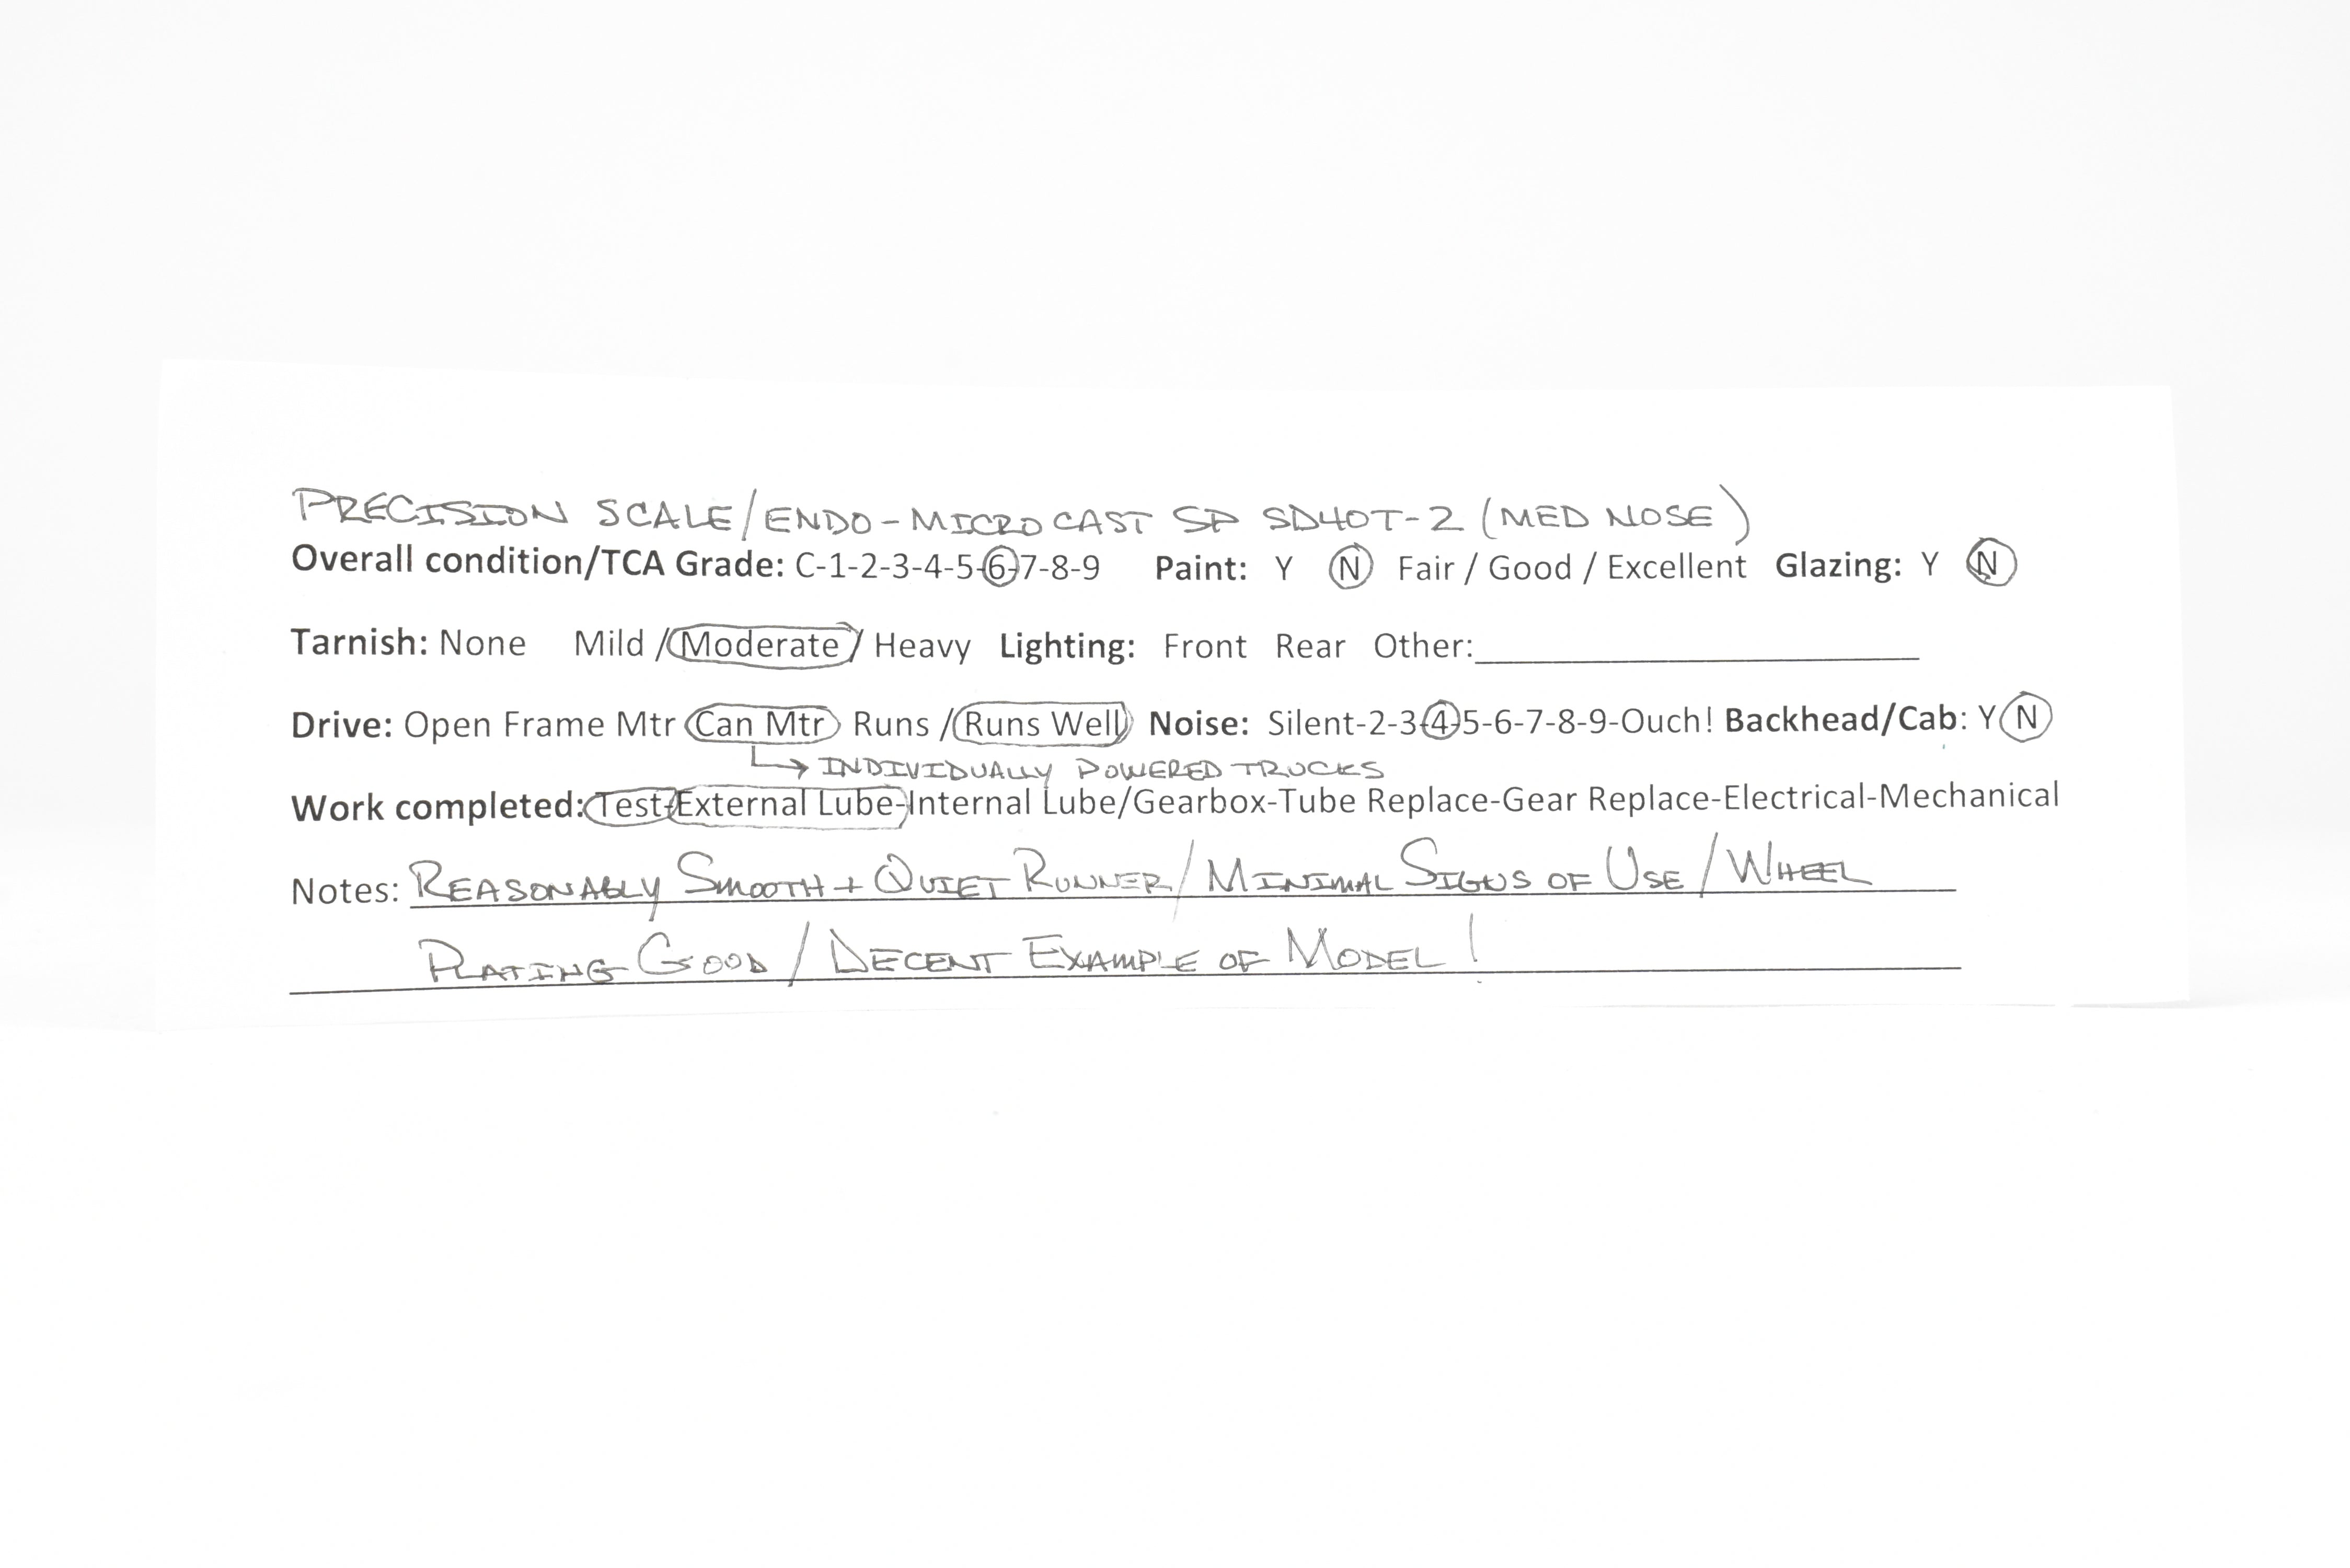 PRECISION SCALE/ENDO-MICRO CAST SP SD40T-2 (MED NOSE)
Overall condition/TCA Grade: C-1-2-3-4-5-6-7-8-9 Paint: Y N Fair / Good / Excellent Glazing: Y N
Tarnish: None Mild / Moderate / Heavy Lighting: Front Rear Other:
Drive: Open Frame Mtr Can Mtr Runs / Runs Well Noise: Silent-2-3-4-5-6-7-8-9-Ouch! Backhead/Cab: Y N
INDIVIDUALLY POWERED TRUCKS
Work completed: Test-External Lube-Internal Lube/Gearbox-Tube Replace-Gear Replace-Electrical-Mechanical
Notes: REASONABLY SMOOTH + QUIET RUNNER / MINIMAL SIGNS OF USE / WHEEL
PLATING GOOD / DECENT EXAMPLE OF MODEL!